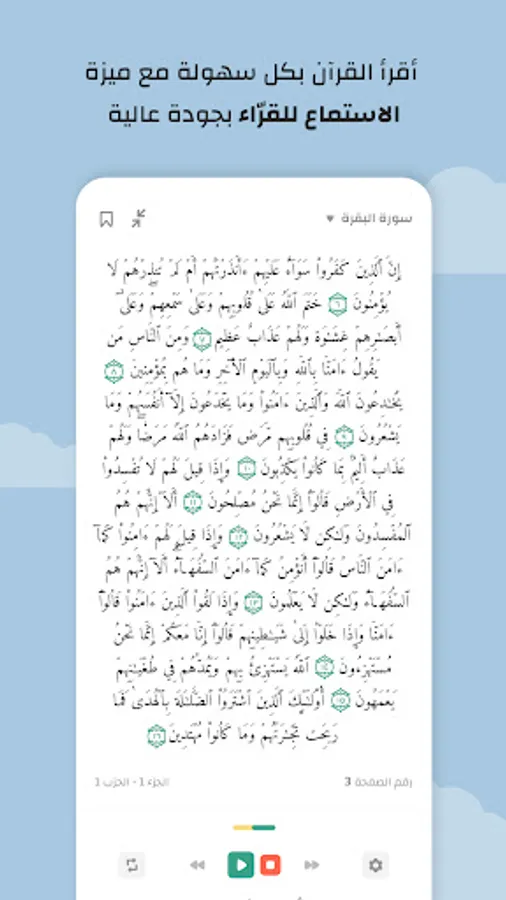 أقرأ القرآن بكل سهولة مع ميزة
الاستماع للقرّاء بجودة عالية
سورة البقرة
إِنَّ ٱلَّذِينَ كَفَرُوا۟ سَوَآءٌ عَلَيْهِمْ ءَأَنذَرْتَهُمْ أَمْ لَمْ تُنذِرْهُمْ لَا
يُؤْمِنُونَ ٦ خَتَمَ ٱللَّهُ عَلَىٰ قُلُوبِهِمْ وَعَلَىٰ سَمْعِهِمْ ۖ وَعَلَىٰٓ
أَبْصَـٰرِهِمْ غِشَـٰوَةٌ وَلَهُمْ عَذَابٌ عَظِيمٌ ٧ وَمِنَ ٱلنَّاسِ مَن
يَقُولُ ءَامَنَّا بِٱللَّهِ وَبِٱلْيَوْمِ ٱلْـَٔاخِرِ وَمَا هُم بِمُؤْمِنِينَ ٨
يُخَـٰدِعُونَ ٱللَّهَ وَٱلَّذِينَ ءَامَنُوا۟ وَمَا يَخْدَعُونَ إِلَّآ أَنفُسَهُمْ وَمَا
يَشْعُرُونَ ٩ فِى قُلُوبِهِم مَّرَضٌ فَزَادَهُمُ ٱللَّهُ مَرَضًا ۖ وَلَهُمْ
عَذَابٌ أَلِيمٌۢ بِمَا كَانُوا۟ يَكْذِبُونَ ١٠ وَإِذَا قِيلَ لَهُمْ لَا تُفْسِدُوا۟
فِى ٱلْأَرْضِ قَالُوٓا۟ إِنَّمَا نَحْنُ مُصْلِحُونَ ١١ أَلَآ إِنَّهُمْ هُمُ
ٱلْمُفْسِدُونَ وَلَـٰكِن لَّا يَشْعُرُونَ ١٢ وَإِذَا قِيلَ لَهُمْ ءَامِنُوا۟ كَمَآ
ءَامَنَ ٱلنَّاسُ قَالُوٓا۟ أَنُؤْمِنُ كَمَآ ءَامَنَ ٱلسُّفَهَآءُ ۗ أَلَآ إِنَّهُمْ هُمُ
ٱلسُّفَهَآءُ وَلَـٰكِن لَّا يَعْلَمُونَ ١٣ وَإِذَا لَقُوا۟ ٱلَّذِينَ ءَامَنُوا۟ قَالُوٓا۟
ءَامَنَّا وَإِذَا خَلَوْا۟ إِلَىٰ شَيَـٰطِينِهِمْ قَالُوٓا۟ إِنَّا مَعَكُمْ إِنَّمَا نَحْنُ
مُسْتَهْزِءُونَ ١٤ ٱللَّهُ يَسْتَهْزِئُ بِهِمْ وَيَمُدُّهُمْ فِى طُغْيَـٰنِهِمْ
يَعْمَهُونَ ١٥ أُو۟لَـٰٓئِكَ ٱلَّذِينَ ٱشْتَرَوُا۟ ٱلضَّلَـٰلَةَ بِٱلْهُدَىٰ فَمَا
رَبِحَت تِّجَـٰرَتُهُمْ وَمَا كَانُوا۟ مُهْتَدِينَ ١٦
رقم الصفحة 3
الجزء 1 - الحزب 1